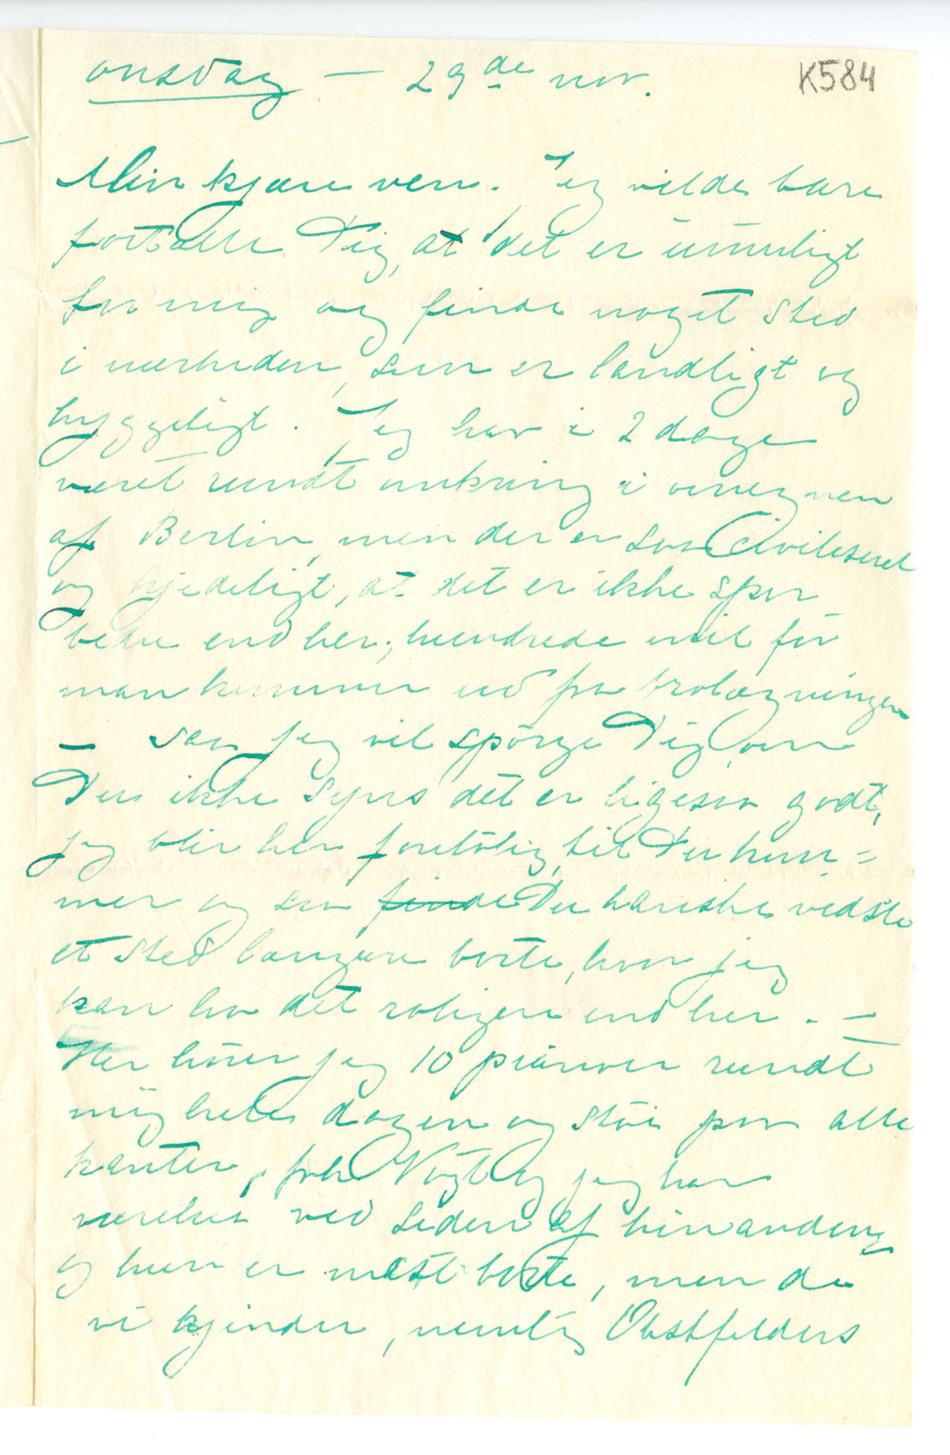 onsdag – 29de nov.
K584
Min kjære ven. Jeg vilde bare
fortælle Dig, at det er umuligt
for mig og finde noget sted
i nærheden, som er landligt og
hyggeligt. Jeg har i 2 dage
været rundt omkring i omegnen
af Berlin, men der er saa civiliseret
og kjedeligt, at det er ikke spor
bedre end her, hundrede mil før
man kommer ud fra brolægningen
– saa jeg vil spørge Dig, om
Du ikke syns det er ligesaa godt,
jeg blir her foreløbig, til Du kom=
mer og saa finde Du kanske vedste
et sted længere borte, hvor jeg
kan ha det roligere end her. –
Her hører jeg 10 pianoer rundt
mig hele dagen og støi paa alle
kanter, frk Vogt og jeg har
værelser ved siden af hinanden,
og hun er mest borte, men de
vi kjender, nemlig Obstfelders